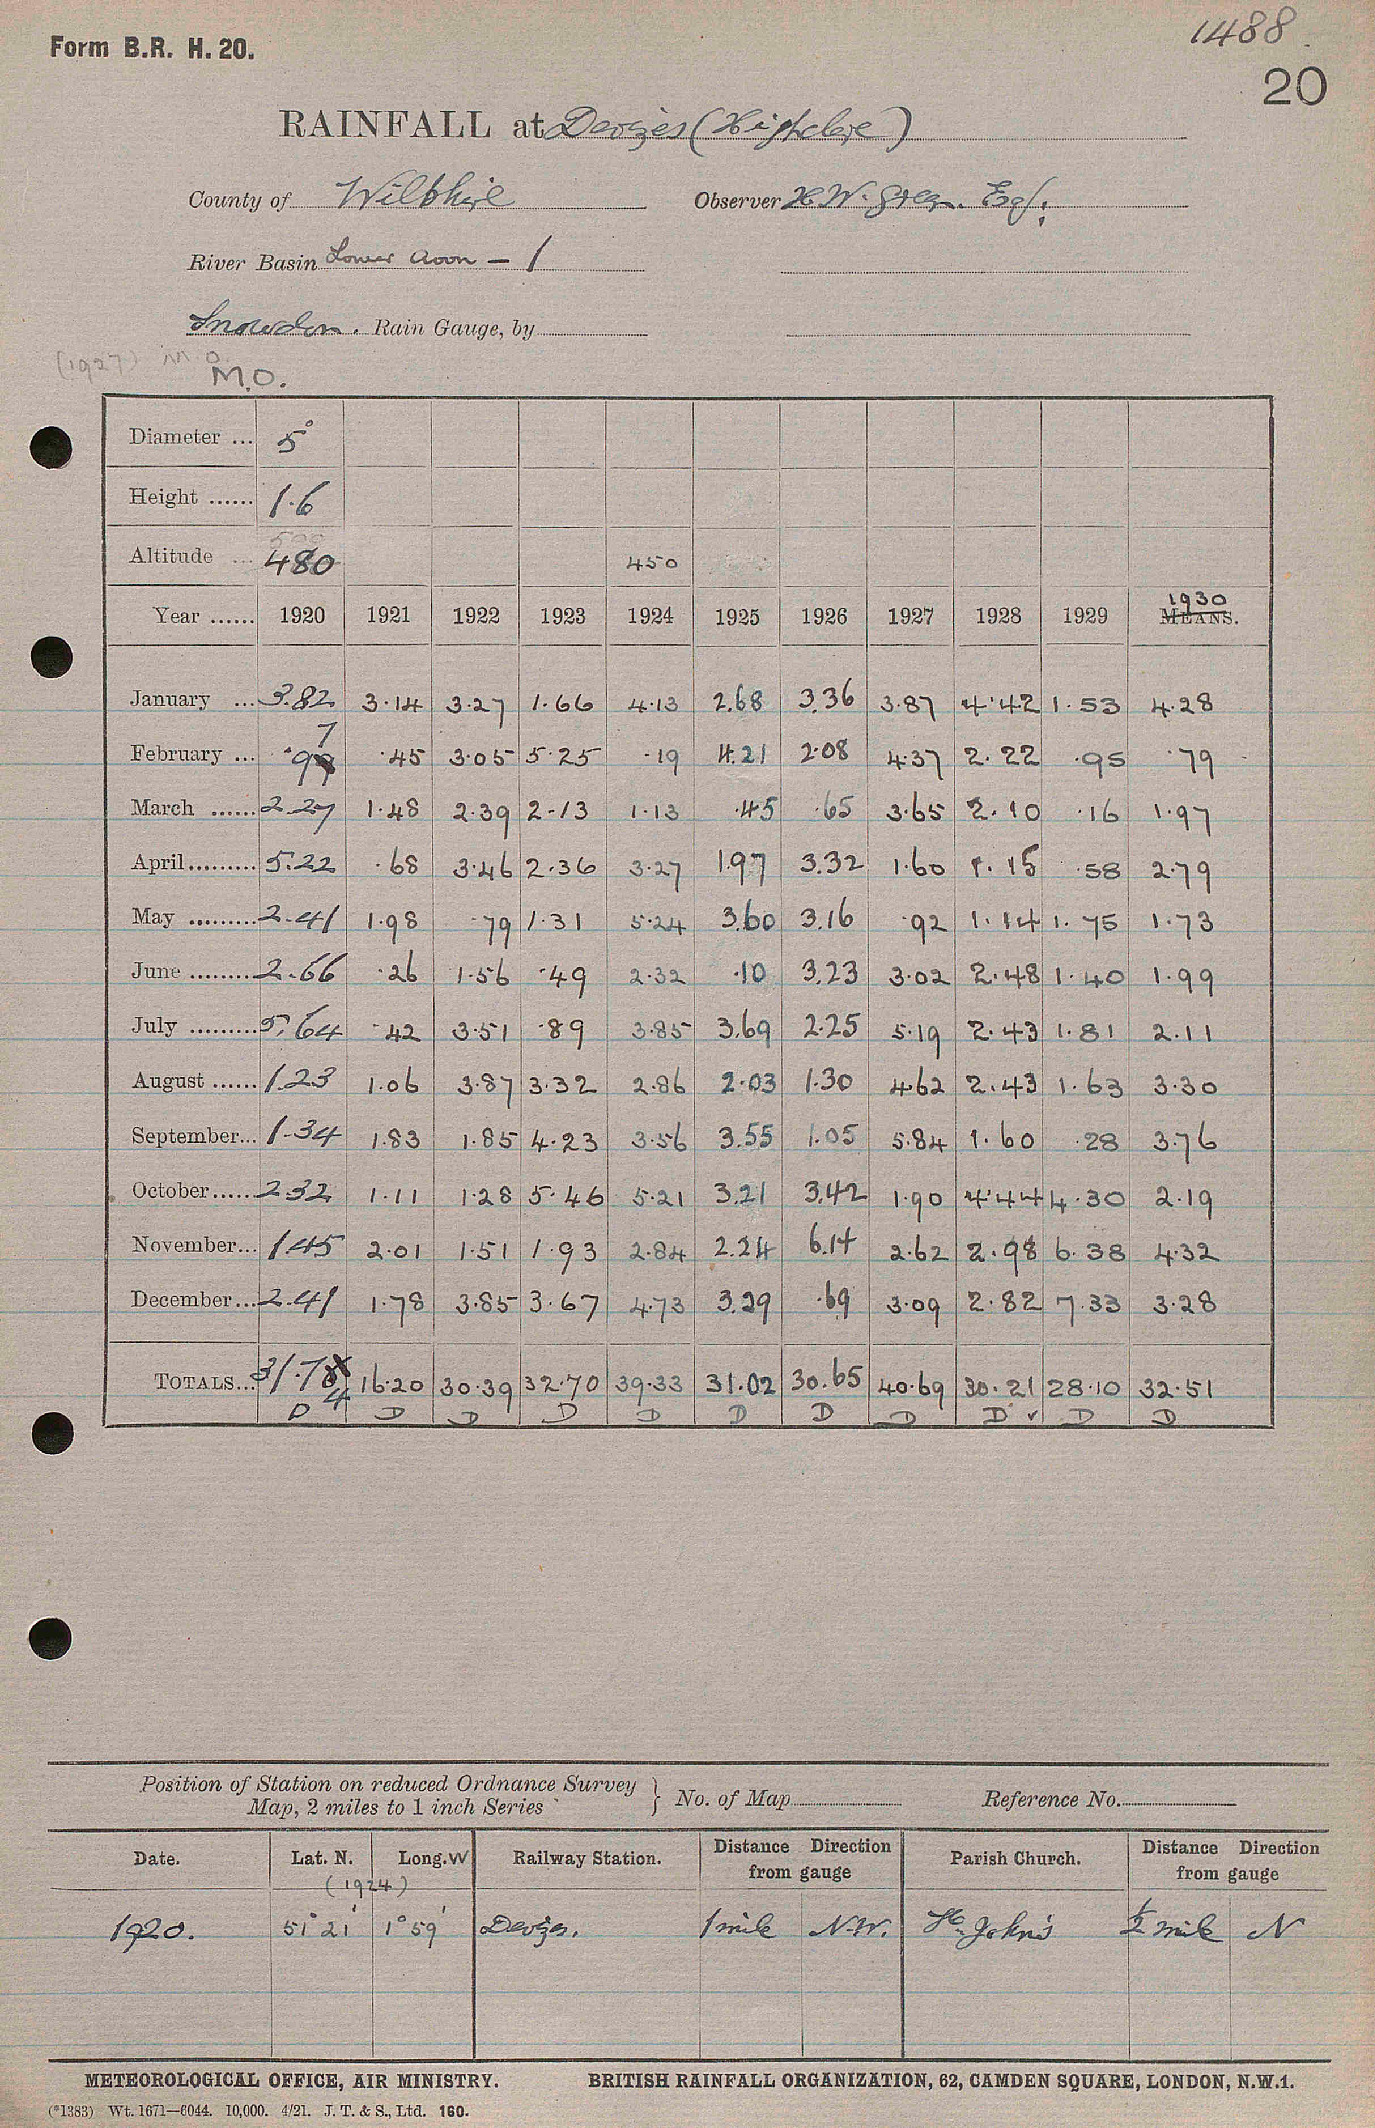 1488
Form B.R. H. 20.
20
RAINFALL at Devizes (Highclere)
County of Wiltshire Observer H. W. Green. Esq.
River Basin Lower Avon – 1
Snowdon. Rain Gauge, by
(1927) M O
M.O.
Diameter ... 5"
Height ...... 1.6
500
Altitude ... 480 450
1930
Year ...... 1920 1921 1922 1923 1924 1925 1926 1927 1928 1929 MEANS.
January ... 3.82 3.14 3.27 1.66 4.13 2.68 3.36 3.87 4.42 1.53 4.28
February ... .97 .45 3.05 5.25 .19 4.21 2.08 4.37 2.22 .95 .79
March ...... 2.27 1.48 2.39 2.13 1.13 .45 .65 3.65 2.10 .16 1.97
April......... 5.22 .68 3.46 2.36 3.27 1.97 3.32 1.60 1.15 .58 2.79
May ......... 2.41 1.98 .79 1.31 5.24 3.60 3.16 .92 1.14 1.75 1.73
June ......... 2.66 .26 1.56 .49 2.32 .10 3.23 3.02 2.48 1.40 1.99
July ......... 5.64 .42 3.51 .89 3.85 3.69 2.25 5.19 2.43 1.81 2.11
August ...... 1.23 1.06 3.87 3.32 2.86 2.03 1.30 4.62 2.43 1.63 3.30
September... 1.34 1.83 1.85 4.23 3.56 3.55 1.05 5.84 1.60 .28 3.76
October...... 2.32 1.11 1.28 5.46 5.21 3.21 3.42 1.90 4.44 4.30 2.19
November... 1.45 2.01 1.51 1.93 2.84 2.24 6.14 2.62 2.98 6.38 4.32
December... 2.41 1.78 3.85 3.67 4.73 3.29 .69 3.09 2.82 7.33 3.28
TOTALS... 31.74 16.20 30.39 32.70 39.33 31.02 30.65 40.69 30.21 28.10 32.51
D D D D D D D D D ✓ D D
Position of Station on reduced Ordnance Survey Map, 2 miles to 1 inch Series } No. of Map Reference No.
Date. Lat. N. Long. W Railway Station. Distance Direction from gauge Parish Church. Distance Direction from gauge
(1924)
1920. 51° 21' 1° 59' Devizes. 1 mile N.W. St. John's ½ mile N
METEOROLOGICAL OFFICE, AIR MINISTRY. BRITISH RAINFALL ORGANIZATION, 62, CAMDEN SQUARE, LONDON, N.W.1.
(*1383) Wt. 1671—6044. 10,000. 4/21. J. T. & S., Ltd. 160.